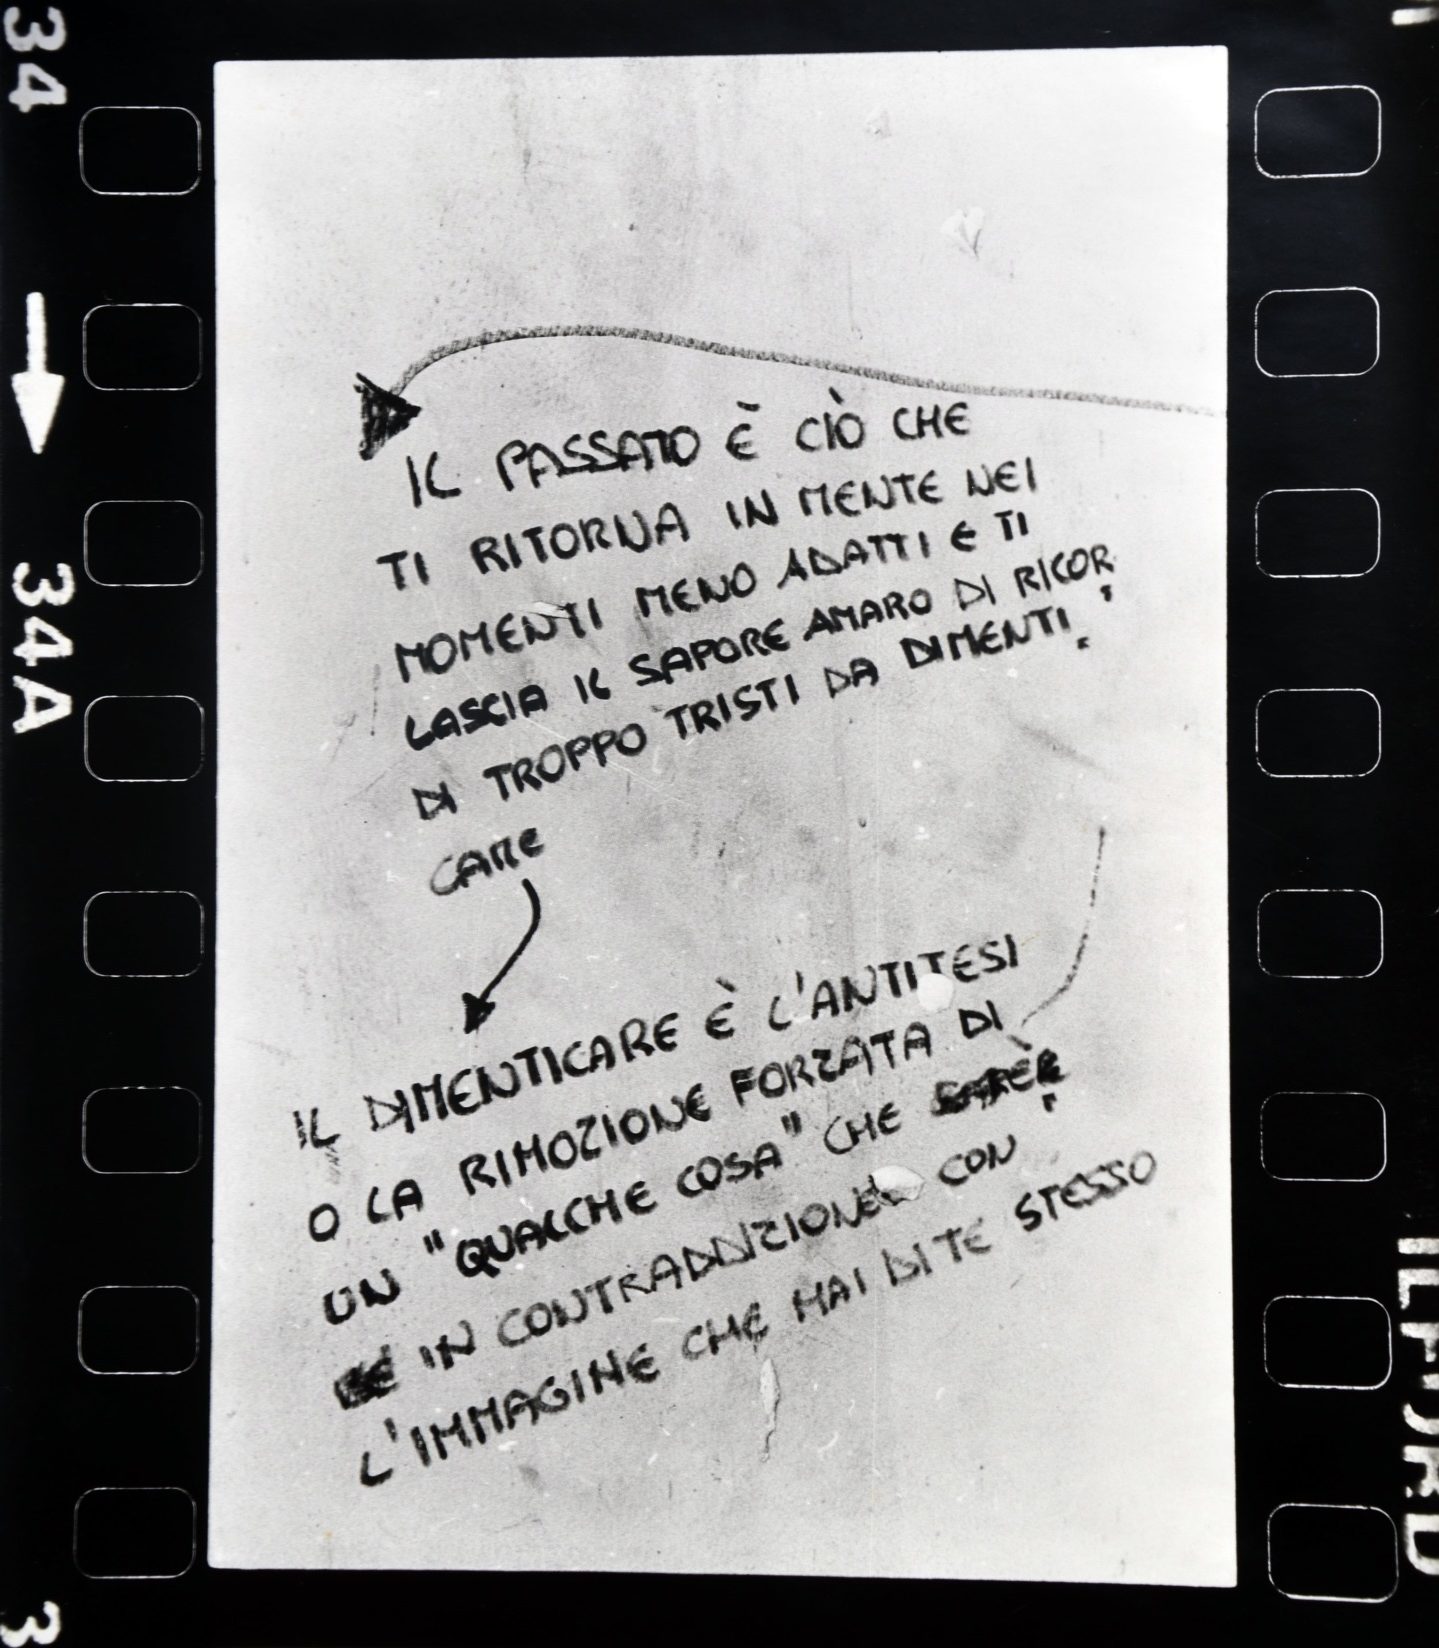 34
34A
3
ILFORD
IL PASSATO È CIÒ CHE
TI RITORNA IN MENTE NEI
MOMENTI MENO ADATTI E TI
LASCIA IL SAPORE AMARO DI RICOR
DI TROPPO TRISTI DA DIMENTI
CARE
IL DIMENTICARE È L'ANTITESI
O LA RIMOZIONE FORZATA DI
UN "QUALCHE COSA" CHE È
IN CONTRADDIZIONE CON
L'IMMAGINE CHE HAI DI TE STESSO